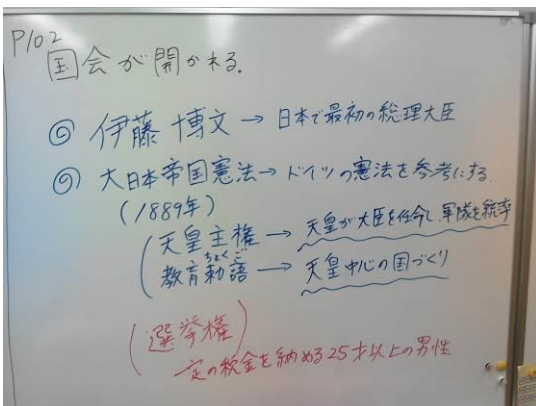 P102
国会が開かれる.
◎ 伊藤 博文 → 日本で最初の総理大臣
◎ 大日本帝国憲法 → ドイツの憲法を参考にする.
(1889年)
天皇主権 → 天皇が大臣を任命し、軍隊を統率
ちょくご
教育勅語 → 天皇中心の国づくり
(選挙権)
一定の税金を納める25才以上の男性